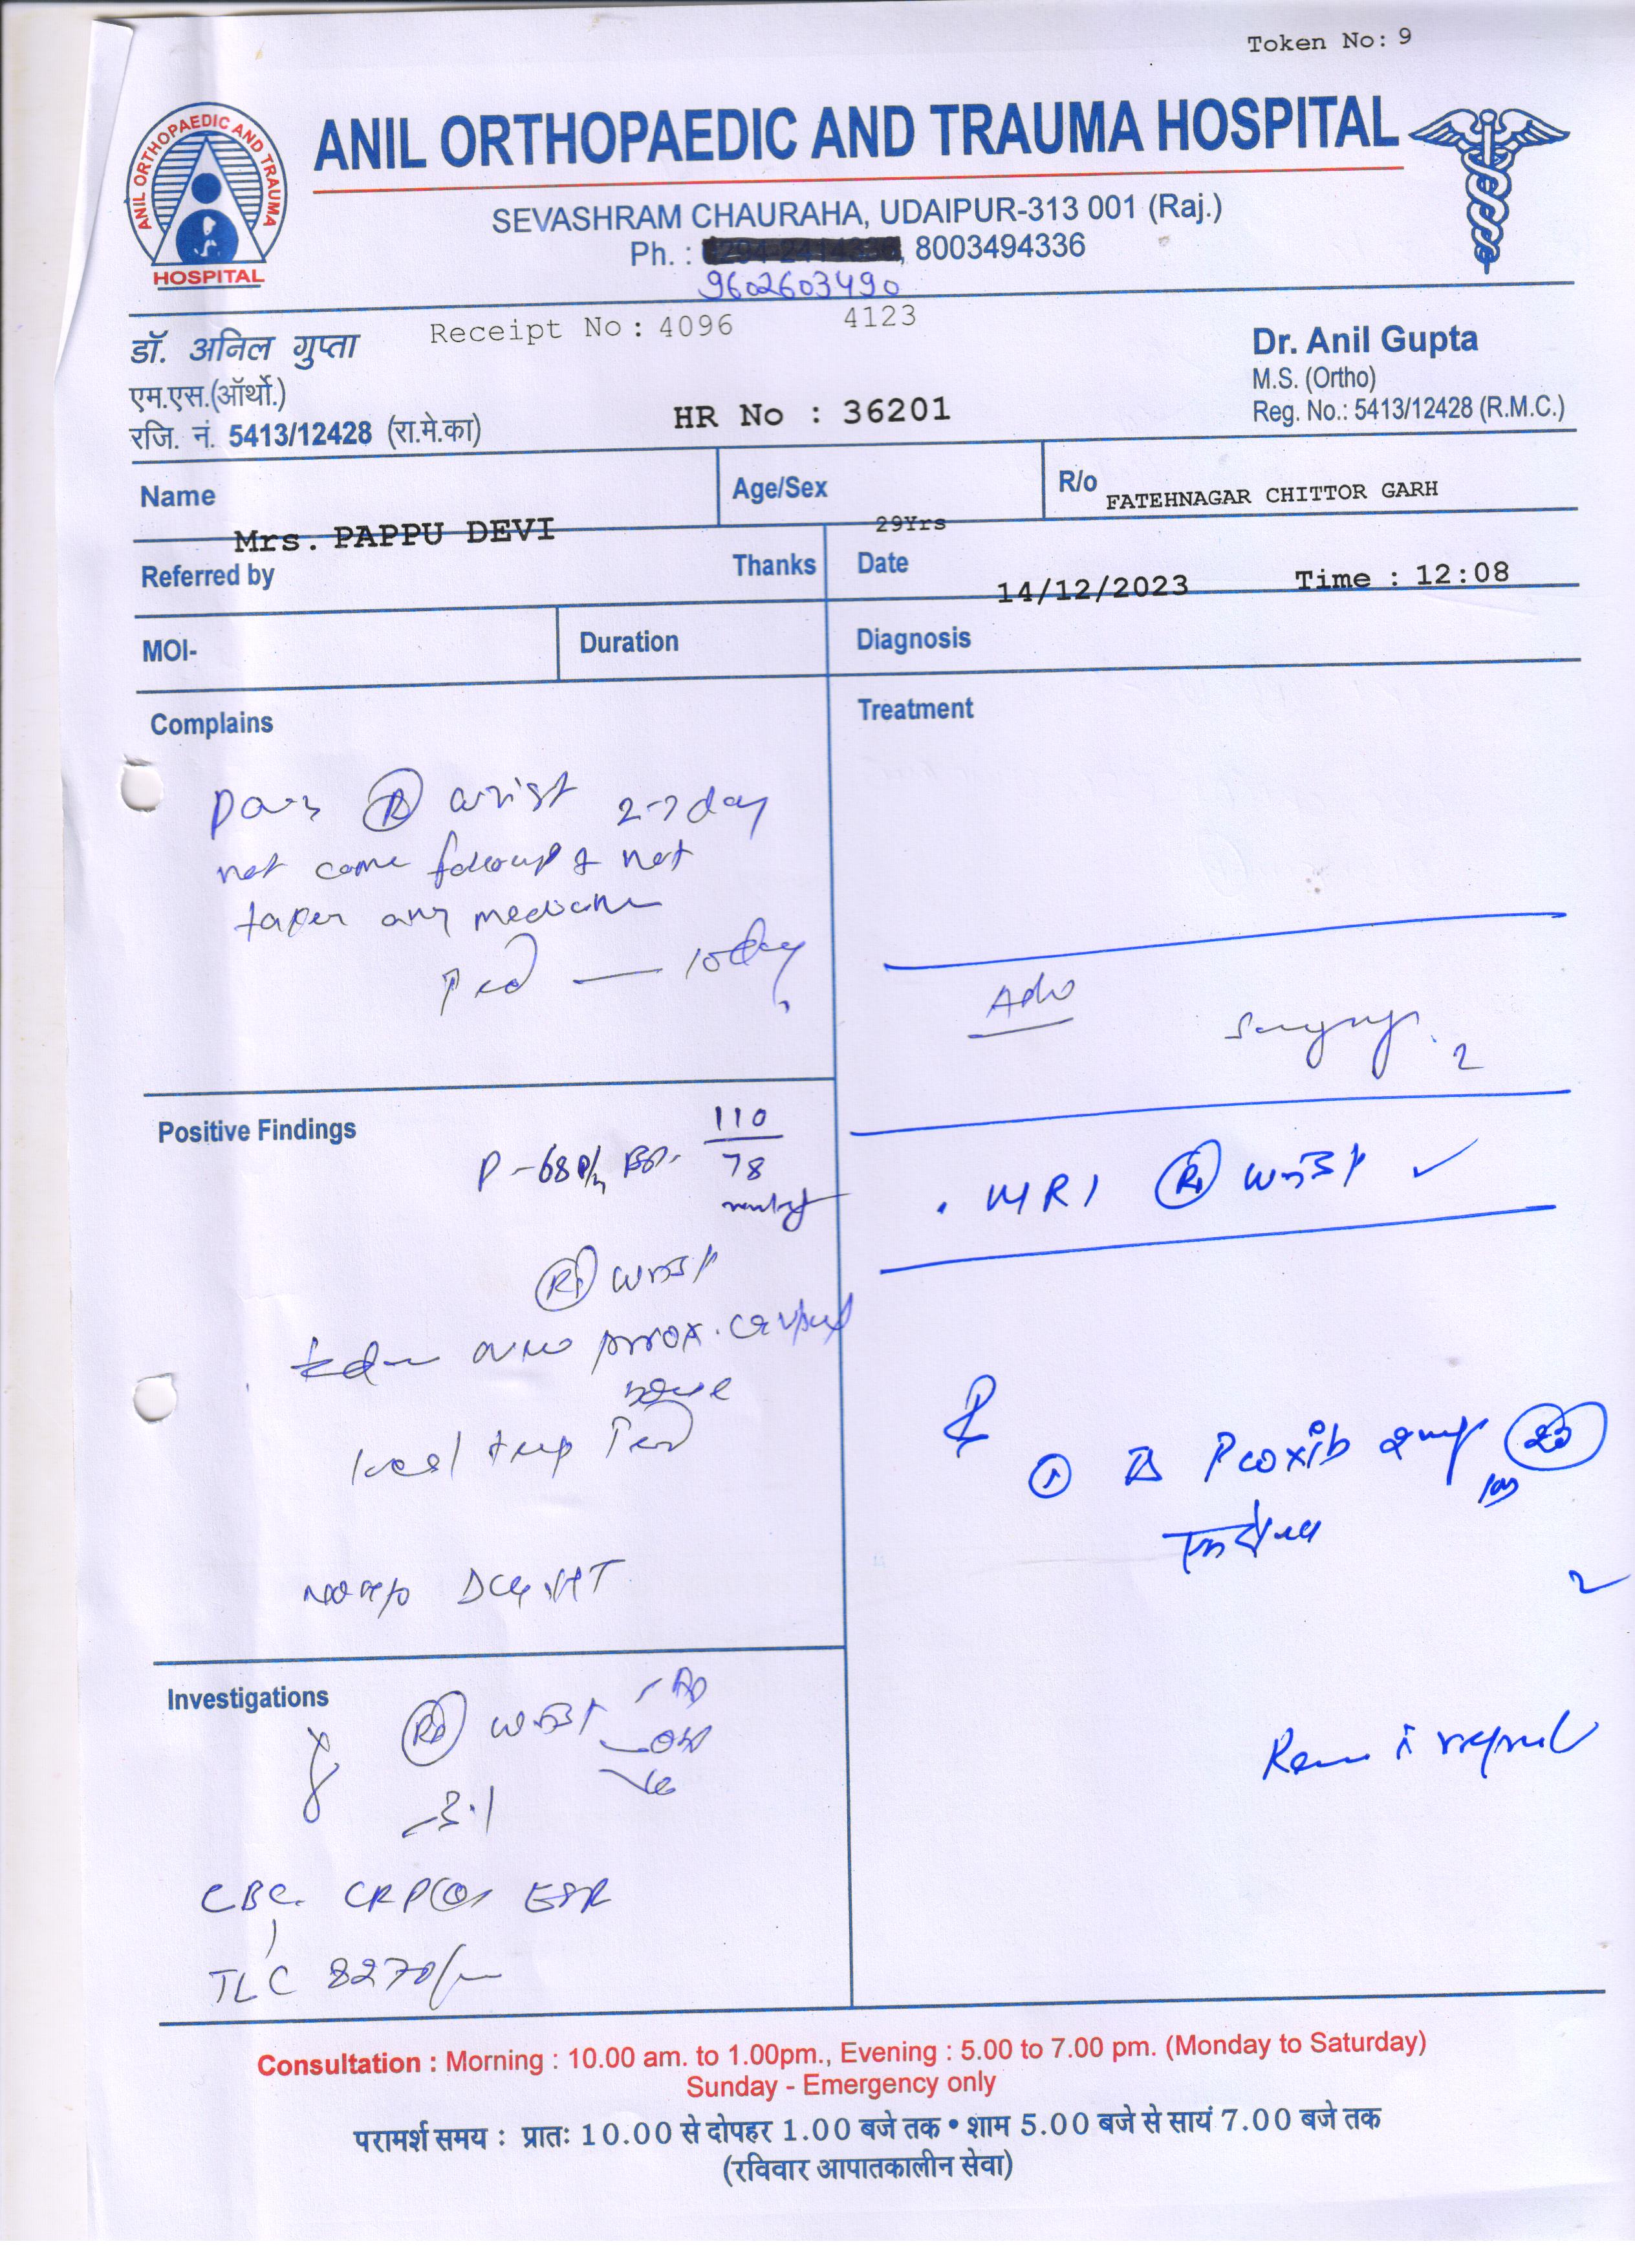 Token No: 9
ANIL ORTHOPAEDIC AND TRAUMA
HOSPITAL
ANIL ORTHOPAEDIC AND TRAUMA HOSPITAL
SEVASHRAM CHAURAHA, UDAIPUR-313 001 (Raj.)
Ph. : , 8003494336
9602603490
Receipt No: 4096 4123
डॉ. अनिल गुप्ता
एम.एस.(ऑर्थो.)
रजि. नं. 5413/12428 (रा.मे.का)
HR No : 36201
Dr. Anil Gupta
M.S. (Ortho)
Reg. No.: 5413/12428 (R.M.C.)
Name Mrs. PAPPU DEVI
Age/Sex 29Yrs
R/o FATEHNAGAR CHITTOR GARH
Referred by Thanks
Date 14/12/2023 Time : 12:08
MOI-
Duration
Diagnosis
Complains
Pain R wrist 2-7 day
not come followup & not
taken any medicine
10 day
Positive Findings
P-68 BP- 110/78
Rt wrist
prox. carpal
local temp
Investigations
Rt wrist
CBC. CRP ESR
TLC 8270/
Treatment
Adv
. MRI Rt wrist ✓
1 Pcoxib
Consultation : Morning : 10.00 am. to 1.00pm., Evening : 5.00 to 7.00 pm. (Monday to Saturday)
Sunday - Emergency only
परामर्श समय : प्रातः 10.00 से दोपहर 1.00 बजे तक • शाम 5.00 बजे से सायं 7.00 बजे तक
(रविवार आपातकालीन सेवा)